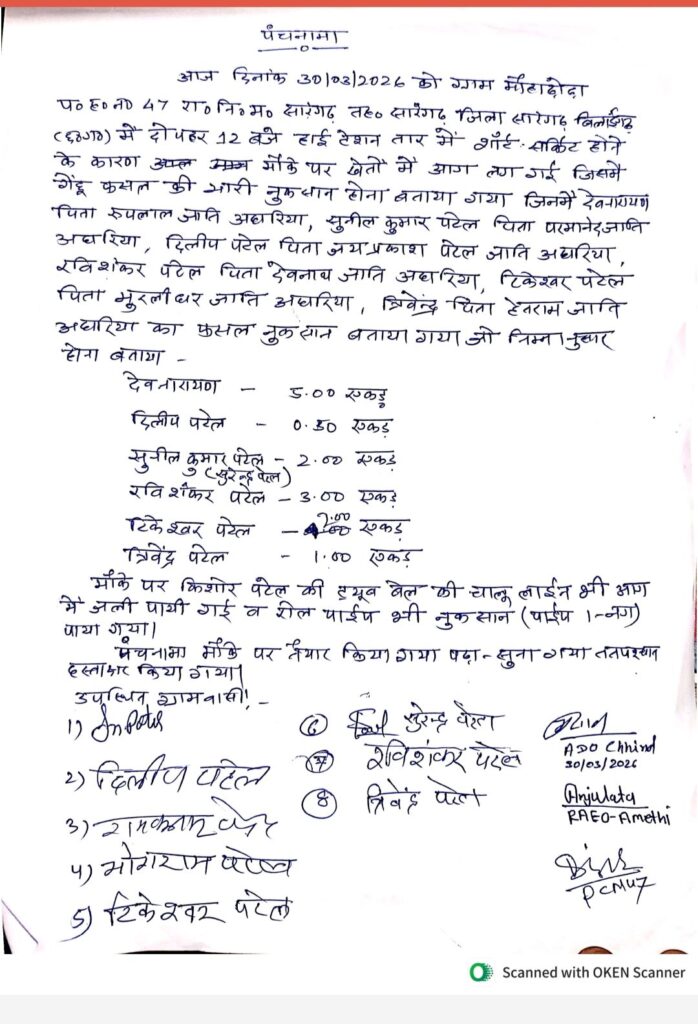 पंचनामा
आज दिनांक 30/03/2026 को ग्राम
प०ह०न० 47 रा०नि०म० सारंगढ़ तह० सारंगढ़ जिला सारंगढ़ बिलाईगढ़
(छ०ग०) में दोपहर 12 बजे हाई टेशन तार में शॉर्ट सर्किट होने
के कारण मौके पर खेतों में आग लग गई जिसमें
गेंहू फसल की भारी नुकसान होना बताया गया जिनमें देवनारायण
पिता रुपलाल जाति अघरिया, सुनील कुमार पटेल पिता परमानंद जाति
अघरिया, दिलीप पटेल पिता जयप्रकाश पटेल जाति अघरिया,
रविशंकर पटेल पिता देवनाथ जाति अघरिया, टिकेश्वर पटेल
पिता मुरलीधर जाति अघरिया, त्रिवेन्द्र पिता हेतराम जाति
अघरिया का फसल नुकसान बताया गया जो निम्नानुसार
होना बताया -
देवनारायण - 5.00 एकड़
दिलीप पटेल - 0.50 एकड़
सुनील कुमार पटेल - 2.00 एकड़
(सुरेन्द्र पटेल)
रविशंकर पटेल - 3.00 एकड़
टिकेश्वर पटेल - एकड़
त्रिवेंद्र पटेल - 1.00 एकड़
मौके पर किशोर पटेल की ट्यूब वेल की चालू लाईन भी आग
में जली पायी गई व रोल पाईप भी नुकसान (पाईप 1-नग)
पाया गया।
पंचनामा मौके पर तैयार किया गया पढ़ा-सुना गया तत्पश्चात
हस्ताक्षर किया गया।
उपस्थित ग्रामवासी! -
1)
2) दिलीप पटेल
3)
4) भोगराम पटेल
5) टिकेश्वर पटेल
6 सुरेन्द्र पटेल
7 रविशंकर पटेल
8 त्रिवेंद्र पटेल
ADO Chhind
30/03/2026
Anjulata
RAEO-Amethi
PCN47
Scanned with OKEN Scanner